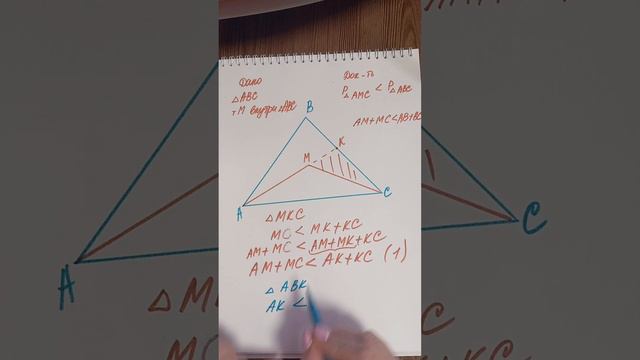 Дано
△ABC
т M внутри △ABC
Док-ть
P△AMC < P△ABC
AM+MC<AB+BC
B
K
M
A
C
△ MKC
MC < MK+KC
AM+MC < AM+MK+KC
AM+MC < AK+KC (1)
△ ABK
AK <